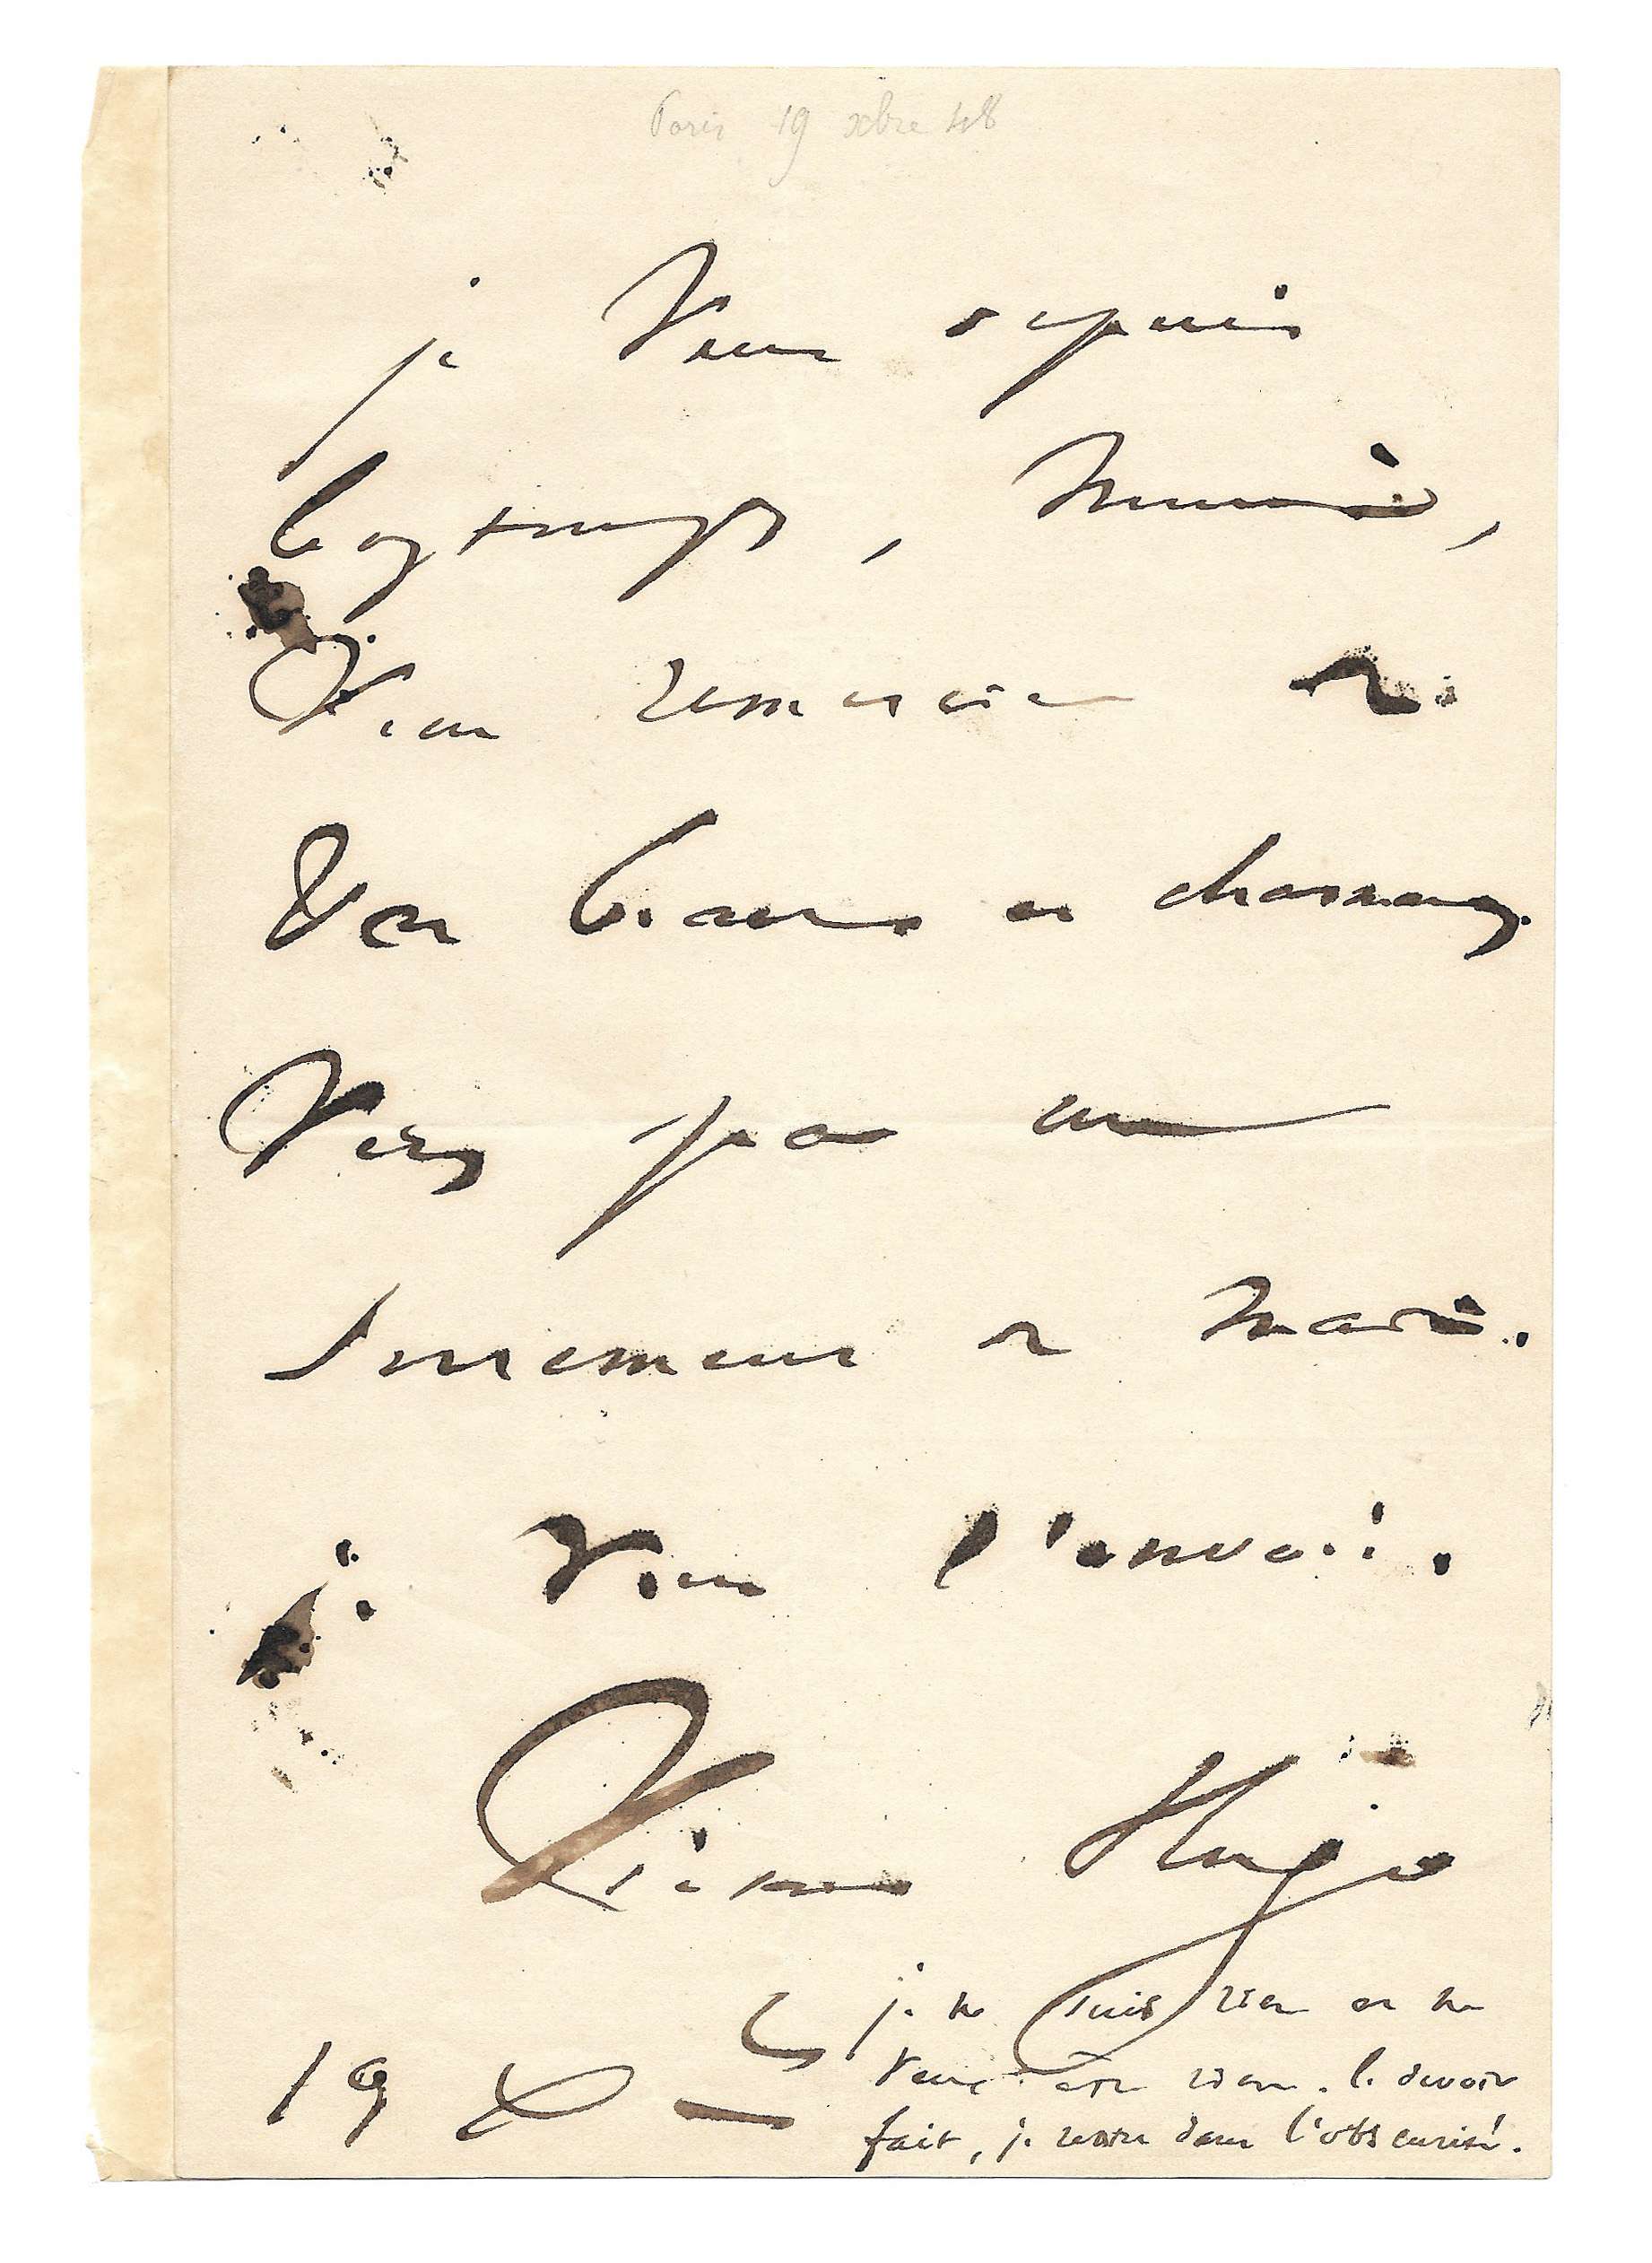 Paris 19 xbre 48
je veux depuis
longtemps, Monsieur,
vous remercier de
vos beaux et charmants
vers par un
serrement de main.
je vous l'envoie.
Victor Hugo
je ne suis rien et ne
veux être rien. le devoir
19 X
fait, je rentre dans l'obscurité.